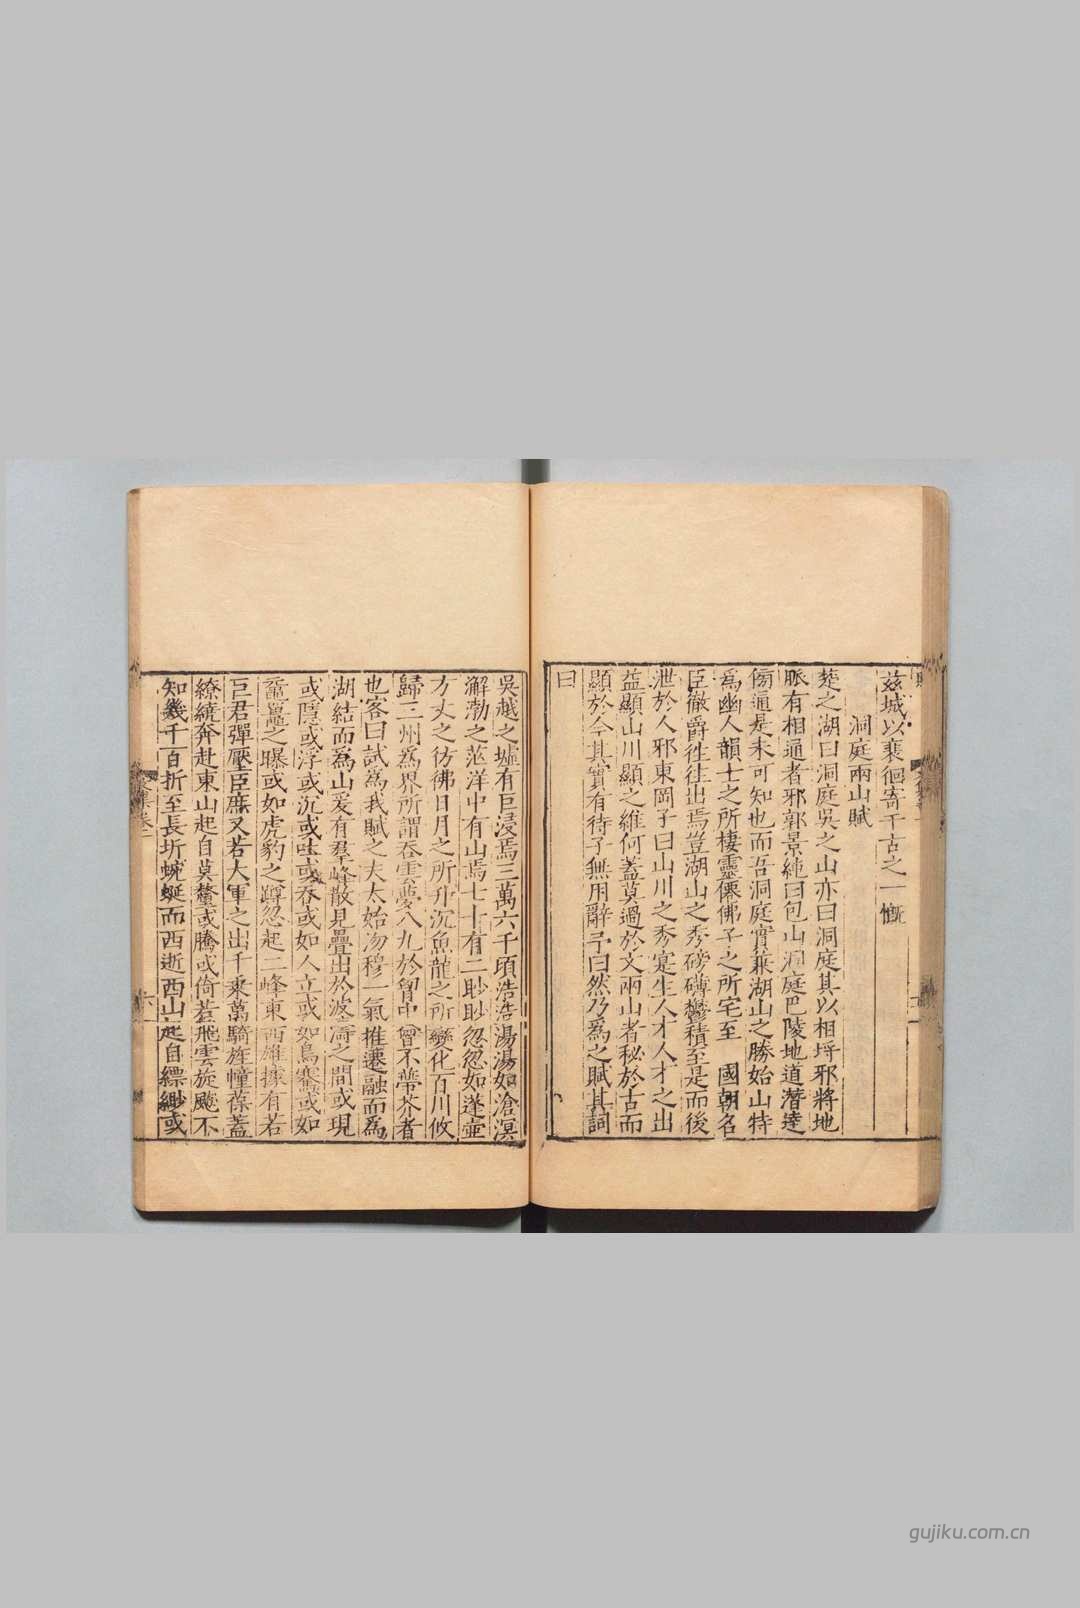 茲城以裵徊寄千古之一慨
洞庭兩山賦
楚之湖曰洞庭吳之山亦曰洞庭其以相埒邪將地
脈有相通者邪郭景純曰包山洞庭巴陵地道潛逹
傍通是未可知也而吾洞庭實蒹湖山之勝始山特
爲幽人韻士之所棲靈僊佛子之所宅至 國朝名
臣徹爵徃徃出焉豈湖山之秀磅礡鬱積至是而後
泄於人邪東岡子曰山川之秀寔生人才人才之出
益顯山川顯之維何蓋莫過於文兩山者秘於古而
顯於今其實有待子無用辭予曰然乃爲之賦其詞
曰
吳越之墟有巨浸焉三萬六千頃浩浩湯湯如滄溟
澥渤之茫洋中有山焉七十有二眇眇忽忽如蓬壺
方丈之彷彿日月之所升沉魚龍之所變化百川攸
歸三州爲界所謂吞雲夢八九於胷中曾不蔕芥者
也客曰試爲我賦之夫太始沕穆一氣推遷融而爲
湖結而爲山爰有羣峰散見疊出於波濤之間或現
或隱或浮或沉或吐或吞或如人立或如鳥騫或如
黿鼉之曝或如虎豹之蹲忽起二峰東西雄據有若
巨君彈壓臣庶又若大軍之出千乘萬騎旌幢葆蓋
繚繞奔赴東山起自莫釐或騰或倚若飛雲旋飈不
知幾千百折至長圻蜿蜒而西逝西山起自縹緲或
六
gujiku.com.cn